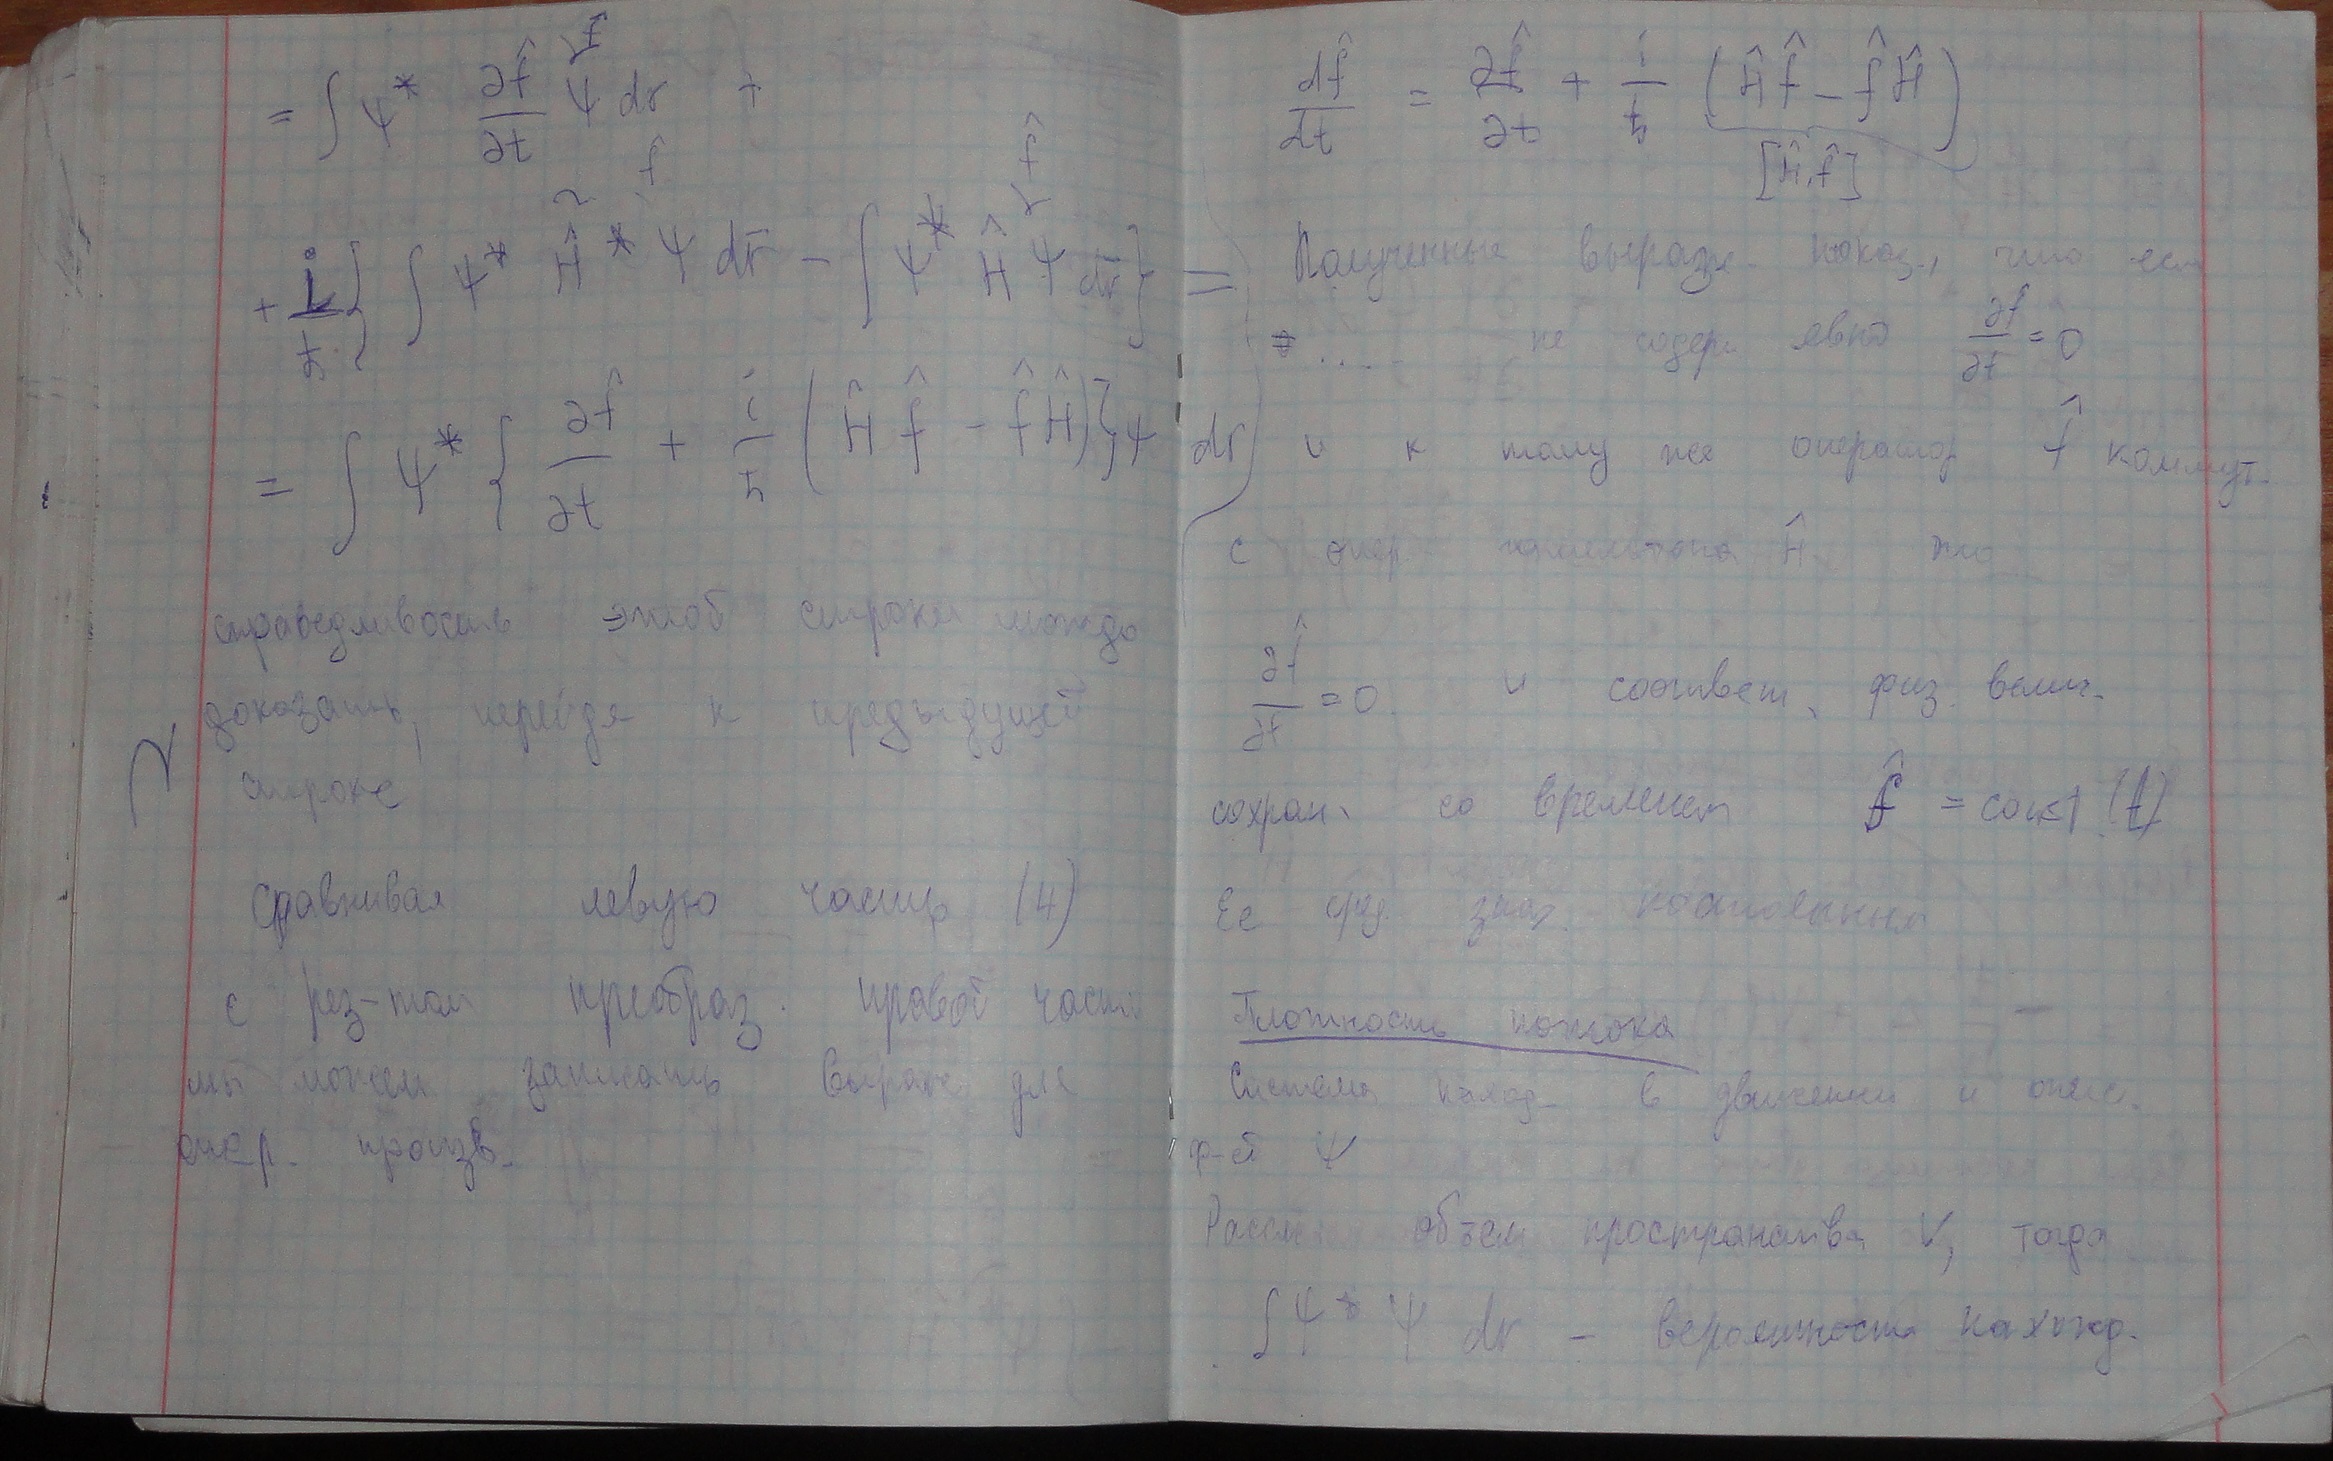 = ∫ ψ* ∂f̂/∂t ψ dr +
+ i/ħ { ∫ ψ* Ĥ* f̂ ψ dr̄ - ∫ ψ* f̂ Ĥ ψ dr̄ } =
= ∫ ψ* { ∂f̂/∂t + i/ħ (Ĥ f̂ - f̂ Ĥ) } ψ dr
справедливость этой строки можно
доказать, перейдя к предыдущей
строке
Сравнивая левую часть (4)
с рез-том преобраз. правой части
мы можем записать выраж. для
опер. произв.
df̂/dt = ∂f̂/∂t + i/ħ (Ĥ f̂ - f̂ Ĥ)
[Ĥ, f̂]
Полученные выраж. показ., что если
..... не содерж явно ∂f/∂t = 0
и к тому же оператор f̂ коммут.
с опер. Ĥ то
∂f̂/∂t = 0 и соответ. физ. велич.
сохран. со временем f̂ = const (t)
Ее сред. знач.
Плотность потока
Система наход. в движении и опис.
ф-ей ψ
Рассм объем пространства V, тогда
∫ ψ* ψ dr - вероятность нахожд.